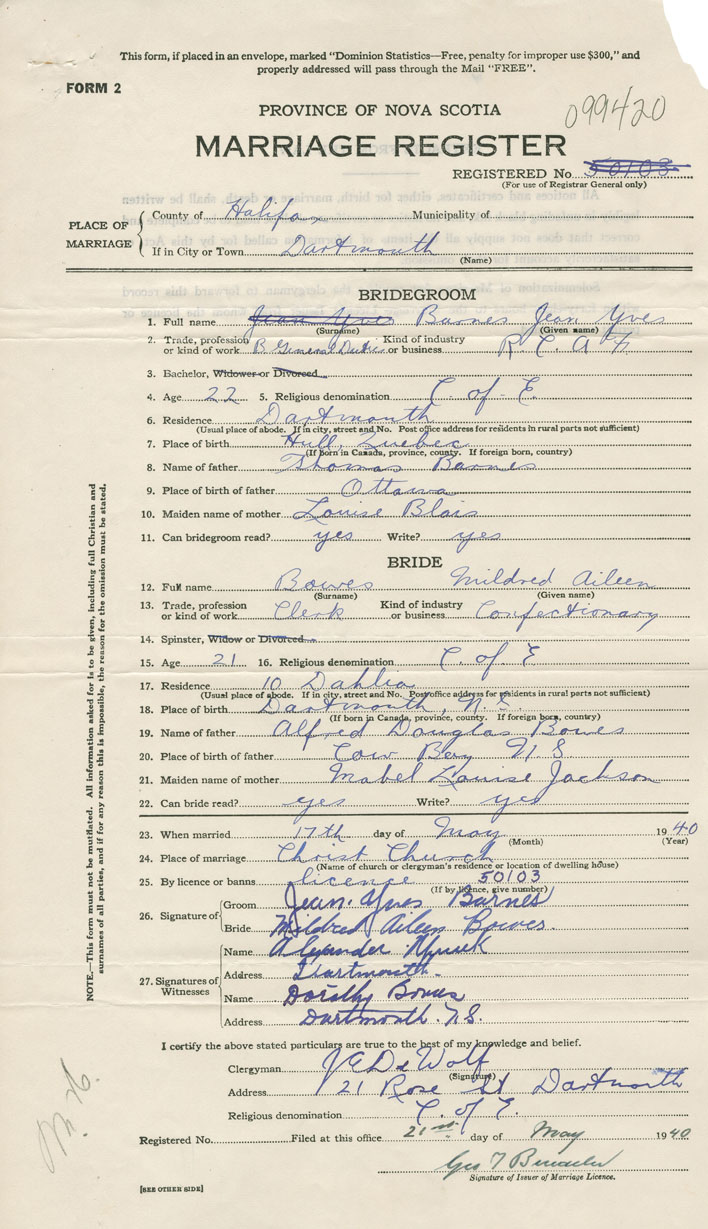 This form, if placed in an envelope, marked "Dominion Statistics—Free, penalty for improper use $300," and
properly addressed will pass through the Mail "FREE".
FORM 2
099420
PROVINCE OF NOVA SCOTIA
MARRIAGE REGISTER
REGISTERED No. 50103
(For use of Registrar General only)
PLACE OF MARRIAGE
County of Halifax Municipality of
If in City or Town Dartmouth
(Name)
BRIDEGROOM
1. Full name Jean Yves Barnes Jean Yves
(Surname) (Given name)
2. Trade, profession or kind of work B General Duties Kind of industry or business R. C. A. F.
3. Bachelor, Widower or Divorced
4. Age 22 5. Religious denomination C. of E.
6. Residence Dartmouth
(Usual place of abode. If in city, street and No. Post office address for residents in rural parts not sufficient)
7. Place of birth Hull, Quebec
(If born in Canada, province, county. If foreign born, country)
8. Name of father Thomas Barnes
9. Place of birth of father Ottawa
10. Maiden name of mother Louise Blais
11. Can bridegroom read? yes Write? yes
BRIDE
12. Full name Bowes Mildred Aileen
(Surname) (Given name)
13. Trade, profession or kind of work Clerk Kind of industry or business Confectionary
14. Spinster, Widow or Divorced
15. Age 21 16. Religious denomination C. of E
17. Residence 10 Dahlia
(Usual place of abode. If in city, street and No. Post office address for residents in rural parts not sufficient)
18. Place of birth Dartmouth, N.S.
(If born in Canada, province, county. If foreign born, country)
19. Name of father Alfred Douglas Bowes
20. Place of birth of father Cow Bay N S
21. Maiden name of mother Mabel Louise Jackson
22. Can bride read? yes Write? yes
23. When married 17th day of May 1940
(Month) (Year)
24. Place of marriage Christ Church
(Name of church or clergyman's residence or location of dwelling house)
25. By licence or banns licence 50103
(If by licence, give number)
26. Signature of
Groom Jean. Yves Barnes
Bride Mildred Aileen Bowes.
27. Signatures of Witnesses
Name Alexander
Address Dartmouth.
Name Dorothy Bowes
Address Dartmouth. N.S.
I certify the above stated particulars are true to the best of my knowledge and belief.
Clergyman J E De Wolf
(Signature)
Address 21 Rose St Dartmouth
Religious denomination C. of E.
Registered No. Filed at this office 21st day of May 1940
Geo T
Signature of Issuer of Marriage Licence.
[SEE OTHER SIDE]
NOTE.—This form must not be mutilated. All information asked for is to be given, including full Christian and
surnames of all parties, and if for any reason this is impossible, the reason for the omission must be stated.